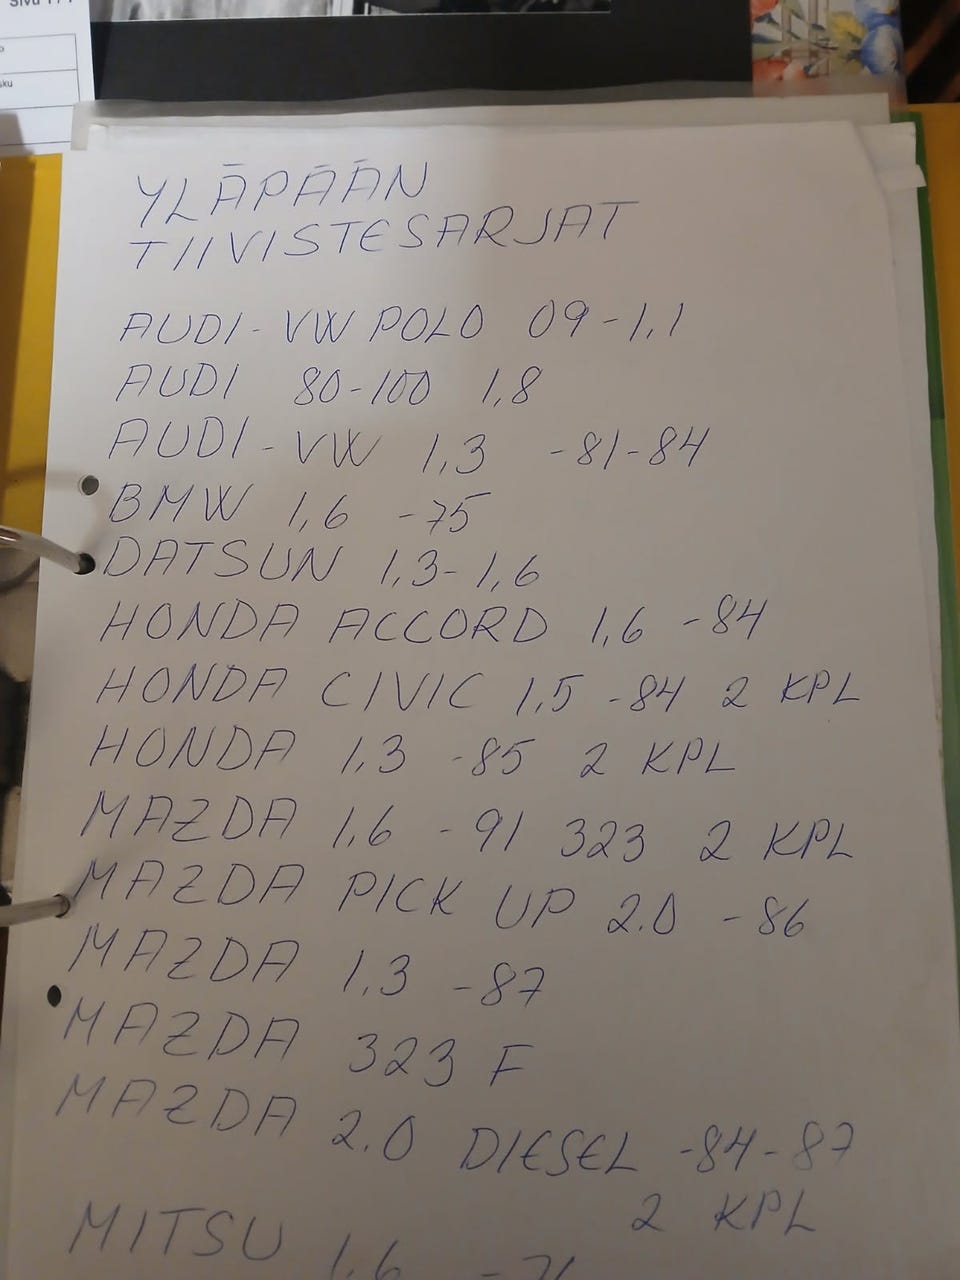 YLÄPÄÄN
TIIVISTESARJAT
AUDI - VW POLO 09-1,1
AUDI 80-100 1,8
AUDI - VW 1,3 -81-84
BMW 1,6 -75
DATSUN 1,3-1,6
HONDA ACCORD 1,6 -84
HONDA CIVIC 1,5 -84 2 KPL
HONDA 1,3 -85 2 KPL
MAZDA 1,6 -91 323 2 KPL
MAZDA PICK UP 2.0 -86
MAZDA 1,3 -87
MAZDA 323 F
MAZDA 2.0 DIESEL -84-87
2 KPL
MITSU 1,6